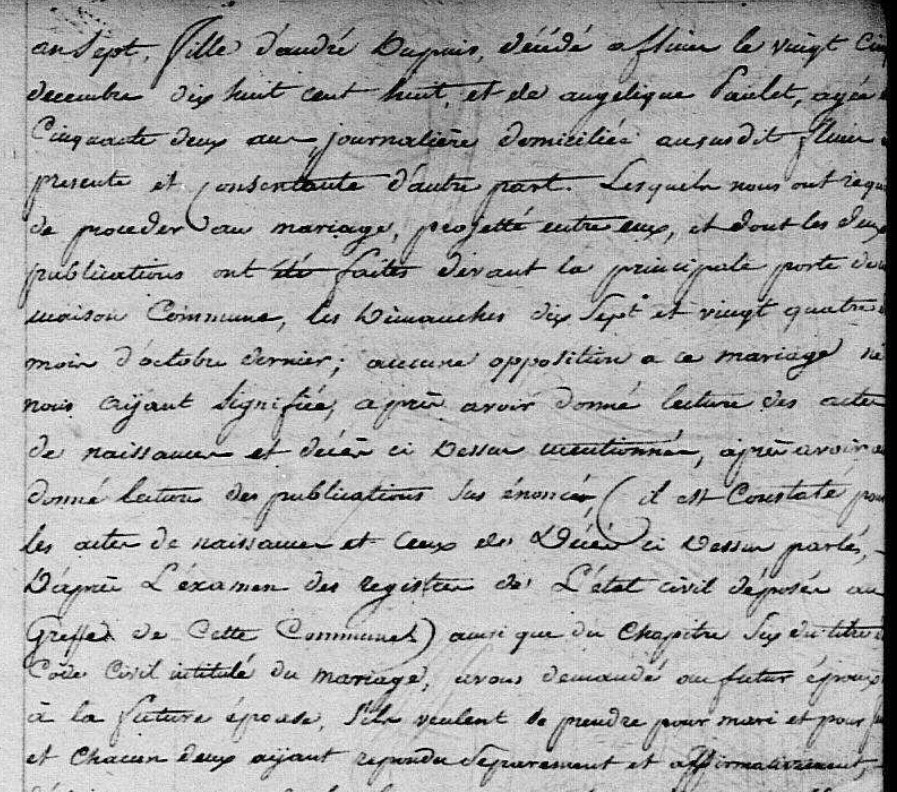 an sept, fille d'andré Dupuis, décédé a fluin le vingt cinq
decembre dix huit cent huit, et de angelique Paulet, agée
Cinquante deux ans journalière domiciliée aususdit fluin
presente et consentante d'autre part. Lesquels nous ont requ
de proceder au mariage, projetté entre eux, et dont les deux
publications ont été faites devant la principale porte de
maison Commune, les Dimanches dix Sept et vingt quatre
mois d'octobre dernier; aucune opposition a ce mariage ne
nous aÿant Signifiée, après avoir donné lecture des actes
de naissances et décès ci Dessus mentionnés, après avoir a
donné lecture des publications sus énoncés (il est Constaté par
les actes de naissances et Ceux de Décès ci Dessus parlés,
D'après L'examen des registres de L'état civil déposés au
Greffe de Cette Commune) ainsi que du Chapitre Six du titre
Code Civil intitulé du mariage, avons demandé au futur époux
à la future épouse, S'ils veulent se prendre pour mari et pour
et Chacun deux aÿant repondu Séparement et affirmativement,